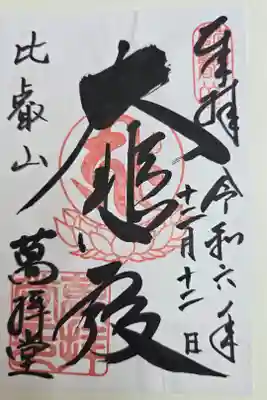 奉拝 令和六年
十二月十二日
大悲殿
比叡山 萬拝堂